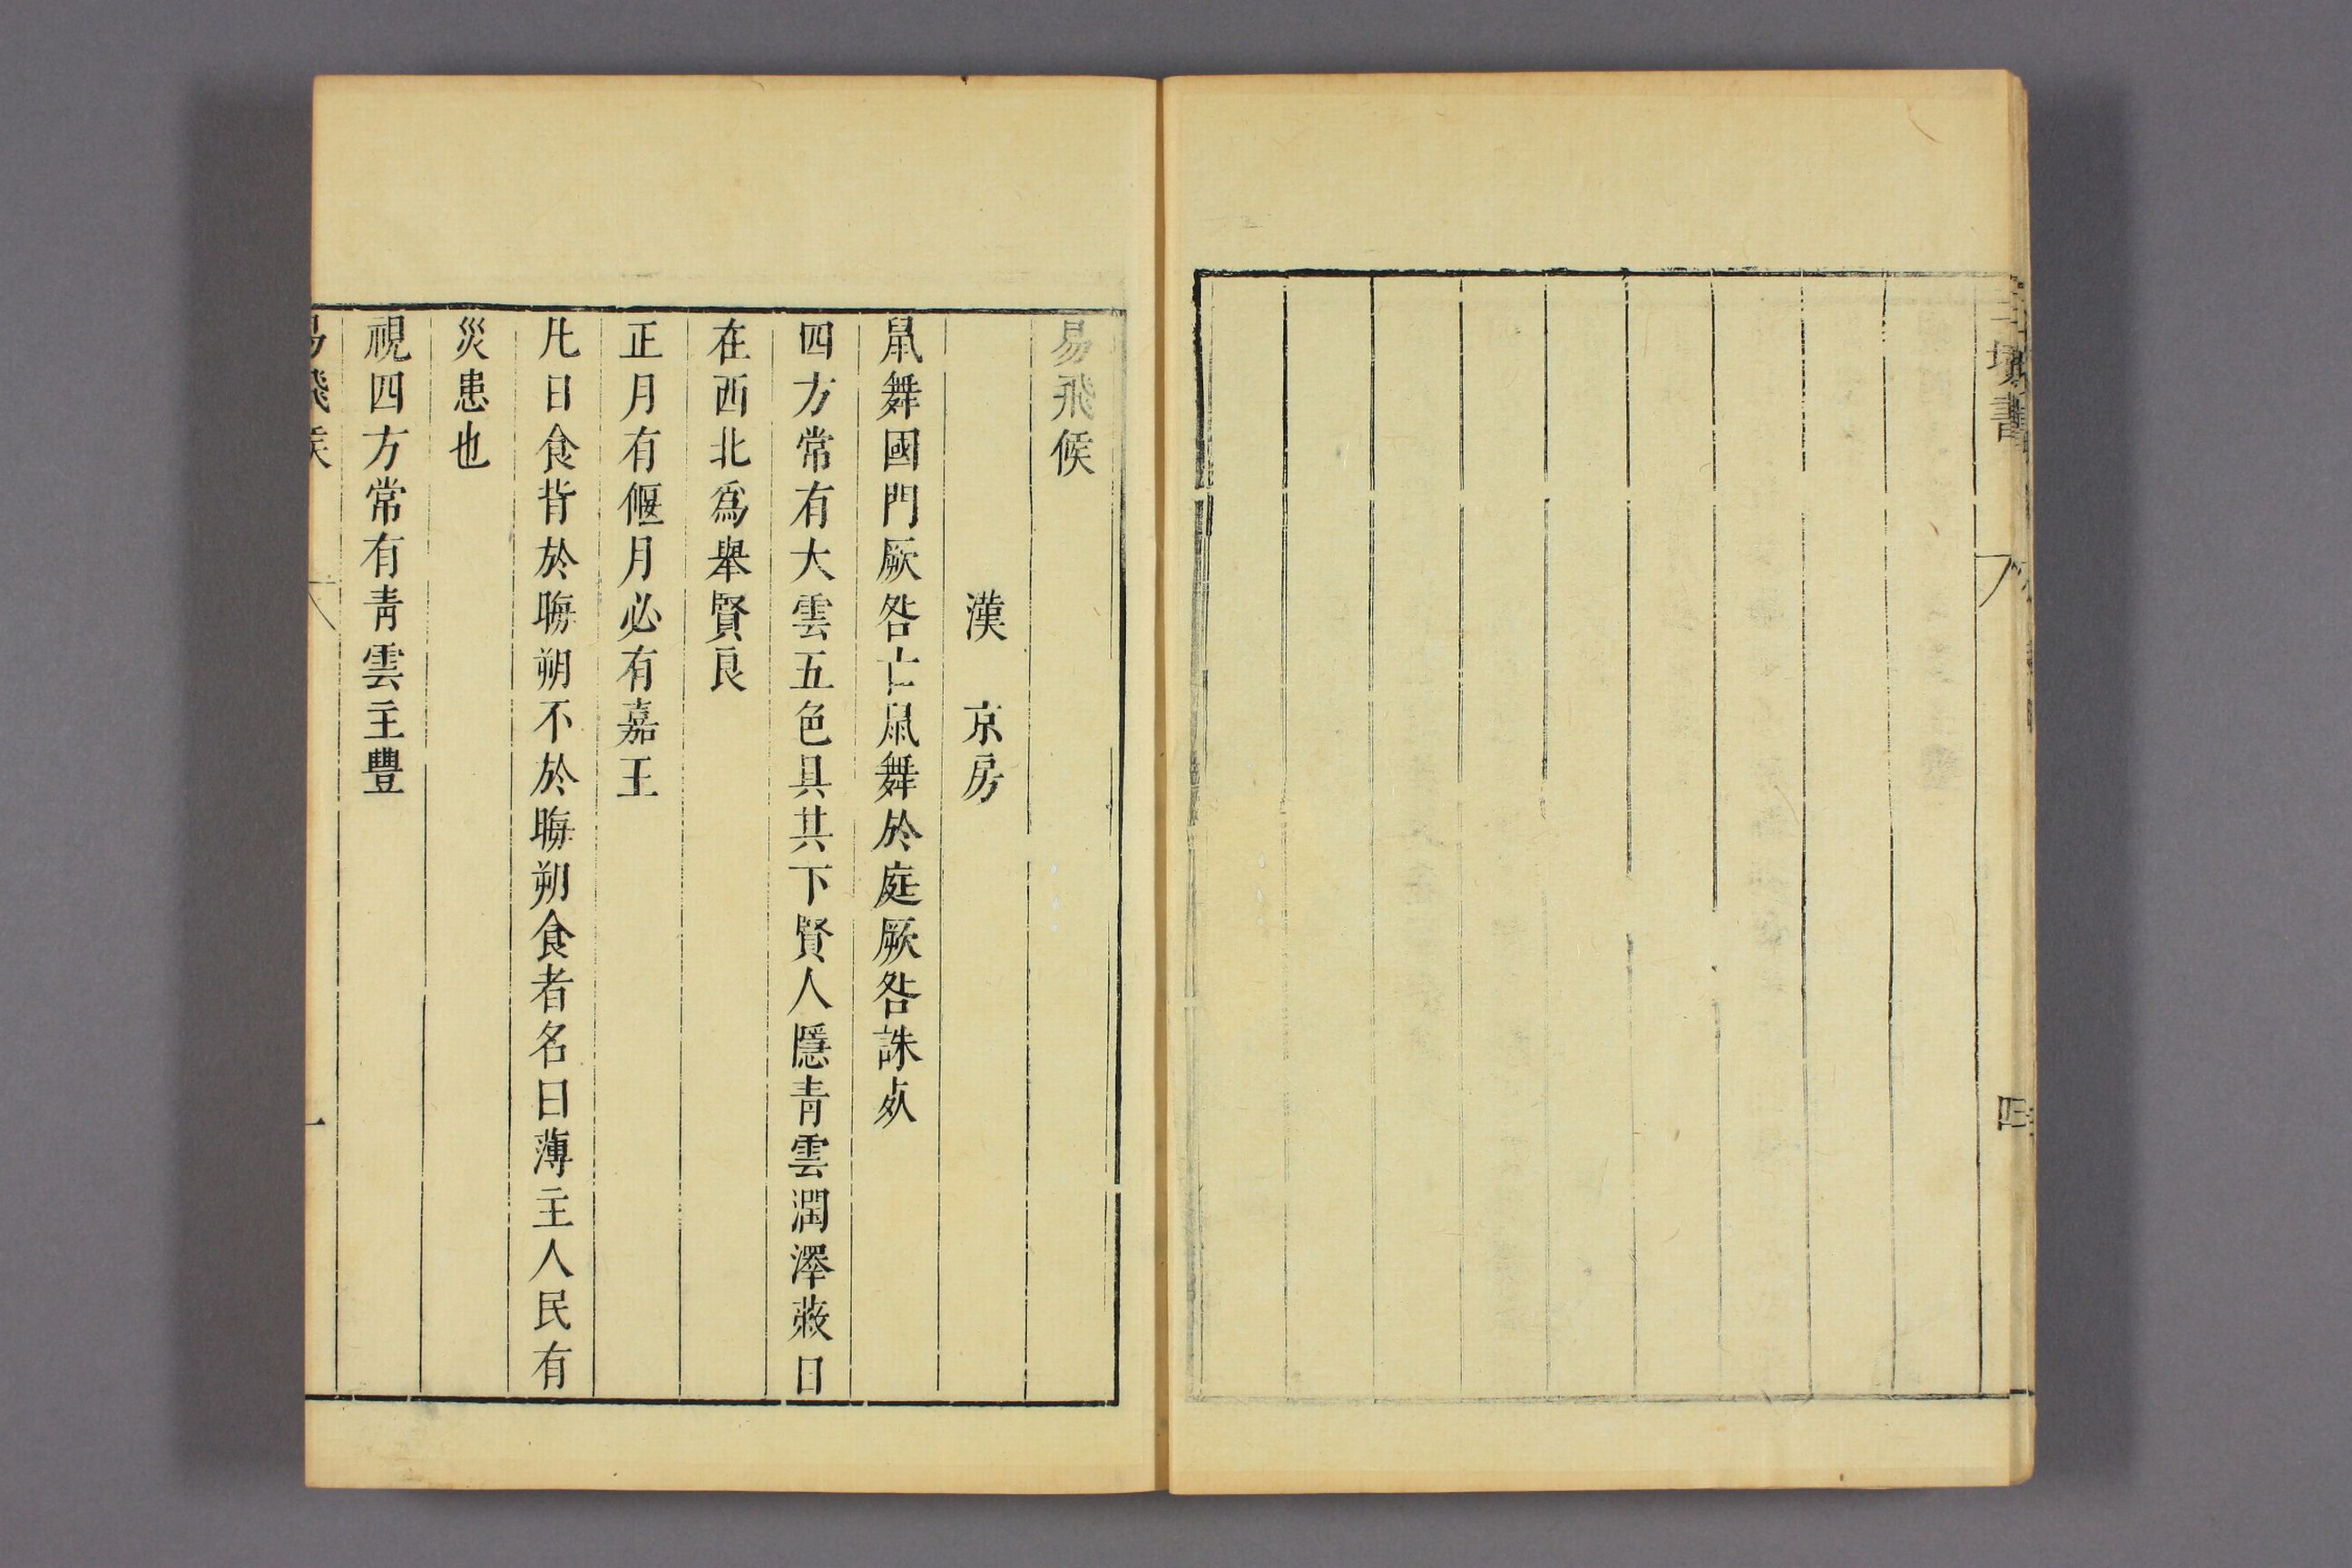 三墳書
四
易飛候
漢 京房
鼠舞國門厥咎亡鼠舞於庭厥咎誅死
四方常有大雲五色具其下賢人隱青雲潤澤蔽日
在西北爲舉賢良
正月有偃月必有嘉王
凡日食皆於晦朔不於晦朔食者名曰薄主人民有
災患也
視四方常有青雲主豐
易飛候
一